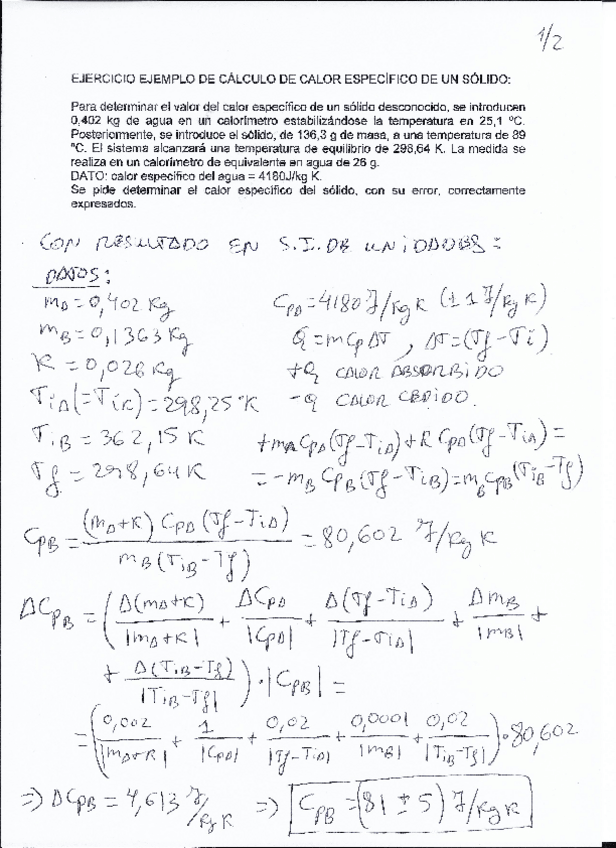 1/2
EJERCICIO EJEMPLO DE CÁLCULO DE CALOR ESPECÍFICO DE UN SÓLIDO:
Para determinar el valor del calor específico de un sólido desconocido, se introducen
0,402 kg de agua en un calorímetro estabilizándose la temperatura en 25,1 ºC.
Posteriormente, se introduce el sólido, de 136,3 g de masa, a una temperatura de 89
ºC. El sistema alcanzará una temperatura de equilibrio de 298,64 K. La medida se
realiza en un calorímetro de equivalente en agua de 26 g.
DATO: calor específico del agua = 4180J/kg K.
Se pide determinar el calor específico del sólido, con su error, correctamente
expresados.
CON RESULTADO EN S.I. DE UNIDADES:
DATOS:
m_A = 0,402 Kg   C_PA = 4180 J/Kg K (±1 J/Kg K)
m_B = 0,1363 Kg   Q = m C_P ΔT , ΔT = (T_f - T_i)
K = 0,026 Kg   +Q CALOR ABSORBIDO
T_iA (= T_iK) = 298,25 K   -Q CALOR CEDIDO.
T_iB = 362,15 K   +m_A C_PA (T_f - T_iA) + K C_PA (T_f - T_iA) =
T_f = 298,64 K   = -m_B C_PB (T_f - T_iB) = m_B C_PB (T_iB - T_f)
C_PB = (m_A + K) C_PA (T_f - T_iA) / m_B (T_iB - T_f) = 80,602 J/Kg K
ΔC_PB = ( Δ(m_A + K) / |m_A + K| + ΔC_PA / |C_PA| + Δ(T_f - T_iA) / |T_f - T_iA| + Δm_B / |m_B| +
+ Δ(T_iB - T_f) / |T_iB - T_f| ) · |C_PB| =
= ( 0,002 / |m_A + K| + 1 / |C_PA| + 0,02 / |T_f - T_iA| + 0,0001 / |m_B| + 0,02 / |T_iB - T_f| ) · 80,602
⇒ ΔC_PB = 4,613 J/Kg K ⇒ C_PB = (81 ± 5) J/Kg K